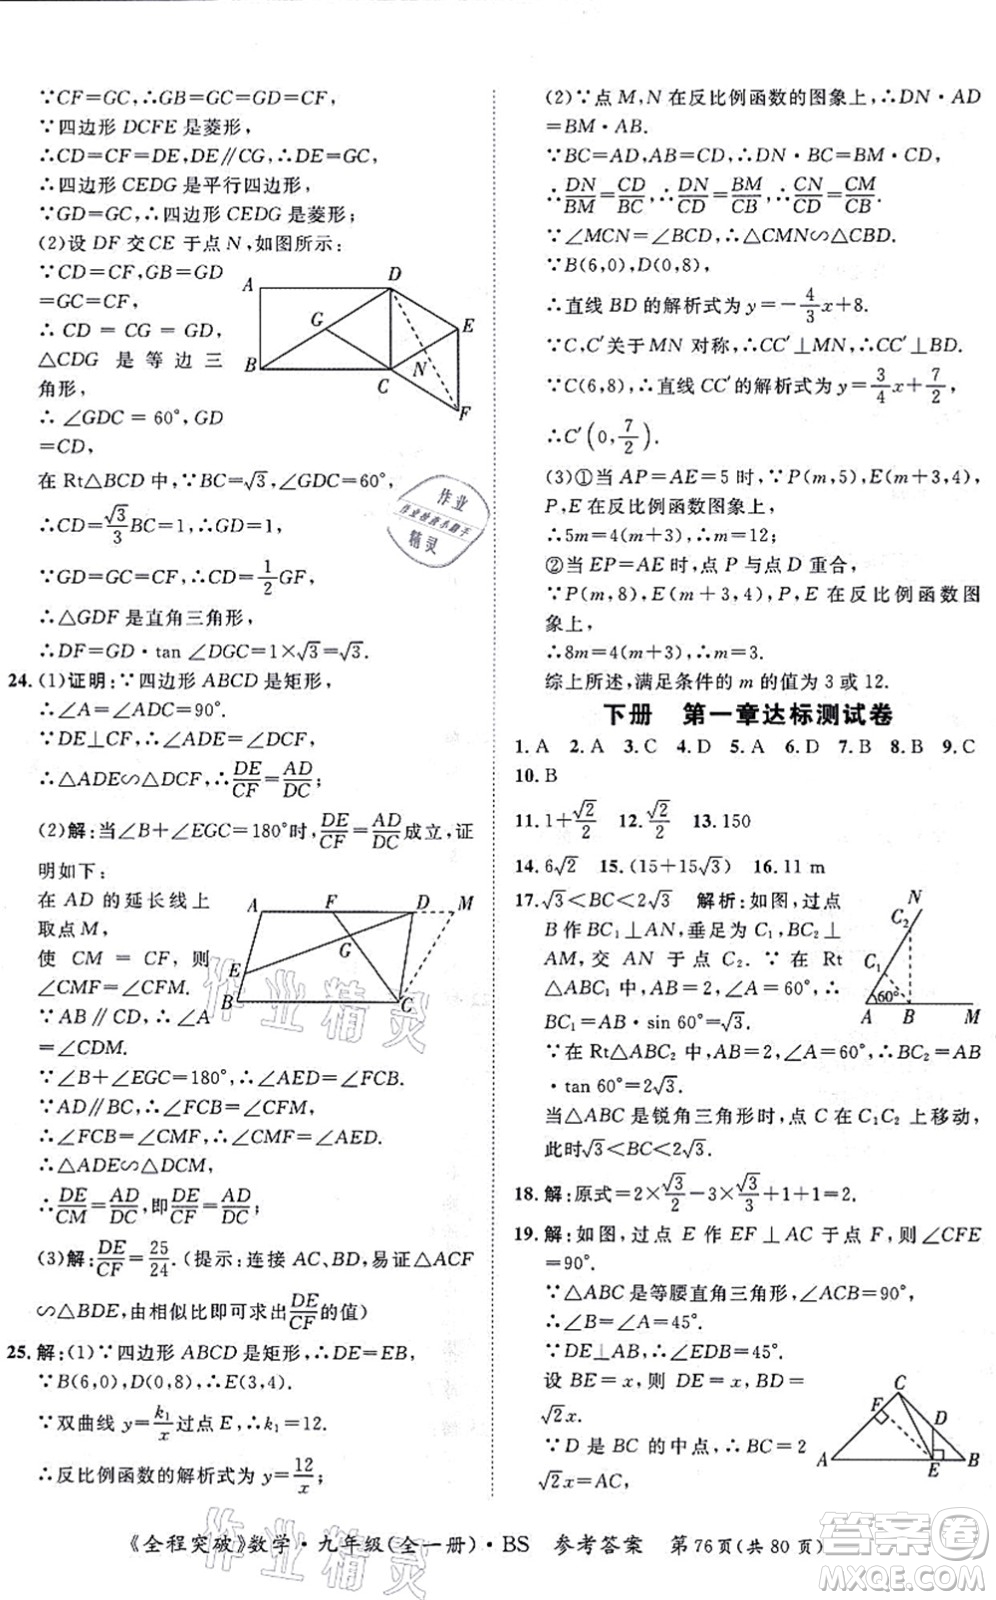 ∵CF=GC,∴GB=GC=GD=CF,
∵四边形 DCFE 是菱形,
∴CD=CF=DE,DE∥CG,∴DE=GC,
∴四边形 CEDG 是平行四边形,
∵GD=GC,∴四边形 CEDG 是菱形;
(2)设 DF 交 CE 于点 N,如图所示:
∵CD=CF,GB=GD
=GC=CF,
∴ CD = CG = GD,
△CDG 是等边三
角形,
∴ ∠GDC = 60°,GD
=CD,
在 Rt△BCD 中,∵BC=√3,∠GDC=60°,
∴CD=√3/3 BC=1,∴GD=1,
∵GD=GC=CF,∴CD=1/2 GF,
∴△GDF 是直角三角形,
∴DF=GD·tan ∠DGC=1×√3=√3.
24.(1)证明:∵四边形 ABCD 是矩形,
∴∠A=∠ADC=90°.
∵DE⊥CF,∴∠ADE=∠DCF,
∴△ADE∽△DCF,∴DE/CF=AD/DC;
(2)解:当∠B+∠EGC=180°时,DE/CF=AD/DC成立,证
明如下:
在 AD 的延长线上
取点 M,
使 CM = CF, 则
∠CMF=∠CFM.
∵AB∥CD,∴∠A
=∠CDM.
∵∠B+∠EGC=180°,∴∠AED=∠FCB.
∵AD∥BC,∴∠FCB=∠CFM,
∴∠FCB=∠CMF,∴∠CMF=∠AED.
∴△ADE∽△DCM,
∴DE/CM=AD/DC,即DE/CF=AD/DC;
(3)解:DE/CF=25/24.(提示:连接 AC,BD,易证△ACF
∽△BDE,由相似比即可求出DE/CF的值)
25.解:(1)∵四边形 ABCD 是矩形,∴DE=EB,
∵B(6,0),D(0,8),∴E(3,4).
∵双曲线 y=k₁/x过点 E,∴k₁=12.
∴反比例函数的解析式为 y=12/x;
(2)∵点 M,N 在反比例函数的图象上,∴DN·AD
=BM·AB.
∵BC=AD,AB=CD,∴DN·BC=BM·CD,
∴DN/BM=CD/BC,∴DN/CD=BM/BC,∴CN/CD=CM/CB.
∵∠MCN=∠BCD,∴△CMN∽△CBD.
∵B(6,0),D(0,8),
∴直线 BD 的解析式为 y=-4/3 x+8.
∵C,C′关于 MN 对称,∴CC′⊥MN,∴CC′⊥BD.
∵C(6,8),∴直线 CC′的解析式为 y=3/4 x+7/2,
∴C′(0,7/2).
(3)①当 AP=AE=5 时,∵P(m,5),E(m+3,4),
P,E 在反比例函数的图象上,
∴5m=4(m+3),∴m=12.
②当 EP=AE 时,点 P 与点 D 重合,
∵P(m,8),E(m+3,4),P,E 在反比例函数图
象上,
∴8m=4(m+3),∴m=3.
综上所述,满足条件的 m 的值为 3 或 12.
下册 第一章达标测试卷
1. A 2. A 3. C 4. D 5. A 6. D 7. B 8. B 9. C
10. B
11. 1+√2/2 12. √2/2 13. 150
14. 6√2 15. (15+15√3) 16. 11 m
17. √3<BC<2√3 解析:如图,过点
B 作 BC₁⊥AN,垂足为 C₁,BC₂⊥
AM,交 AN 于点 C₂. ∵在 Rt
△ABC₁ 中,AB=2,∠A=60°,∴
BC₁=AB·sin 60°=√3.
∵在 Rt△ABC₂ 中,AB=2,∠A=60°,∴BC₂=AB
·tan 60°=2√3.
当△ABC 是锐角三角形时,点 C 在 C₁C₂ 上移动,
此时√3<BC<2√3.
18.解:原式=2×√3/2-3×√3/3+1+1=2.
19.解:如图,过点 E 作 EF⊥AC 于点 F,则∠CFE
=90°.
∵△ABC 是等腰直角三角形,∠ACB=90°,
∴∠B=∠A=45°.
∵DE⊥AB,∴∠EDB=45°.
设 BE=x,则 DE=x,BD=
√2x.
∵D 是 BC 的中点,∴BC=2
√2x=AC,
A
B
C
D
E
F
G
N
A
B
C
D
E
F
G
M
A
B
C₁
C₂
M
N
60°
A
B
C
D
E
F
作业
作业检查小助手
精灵
作业精灵
作业精灵
《全程突破》数学·九年级(全一册)·BS 参考答案 第76页(共80页)
MXQE.COM